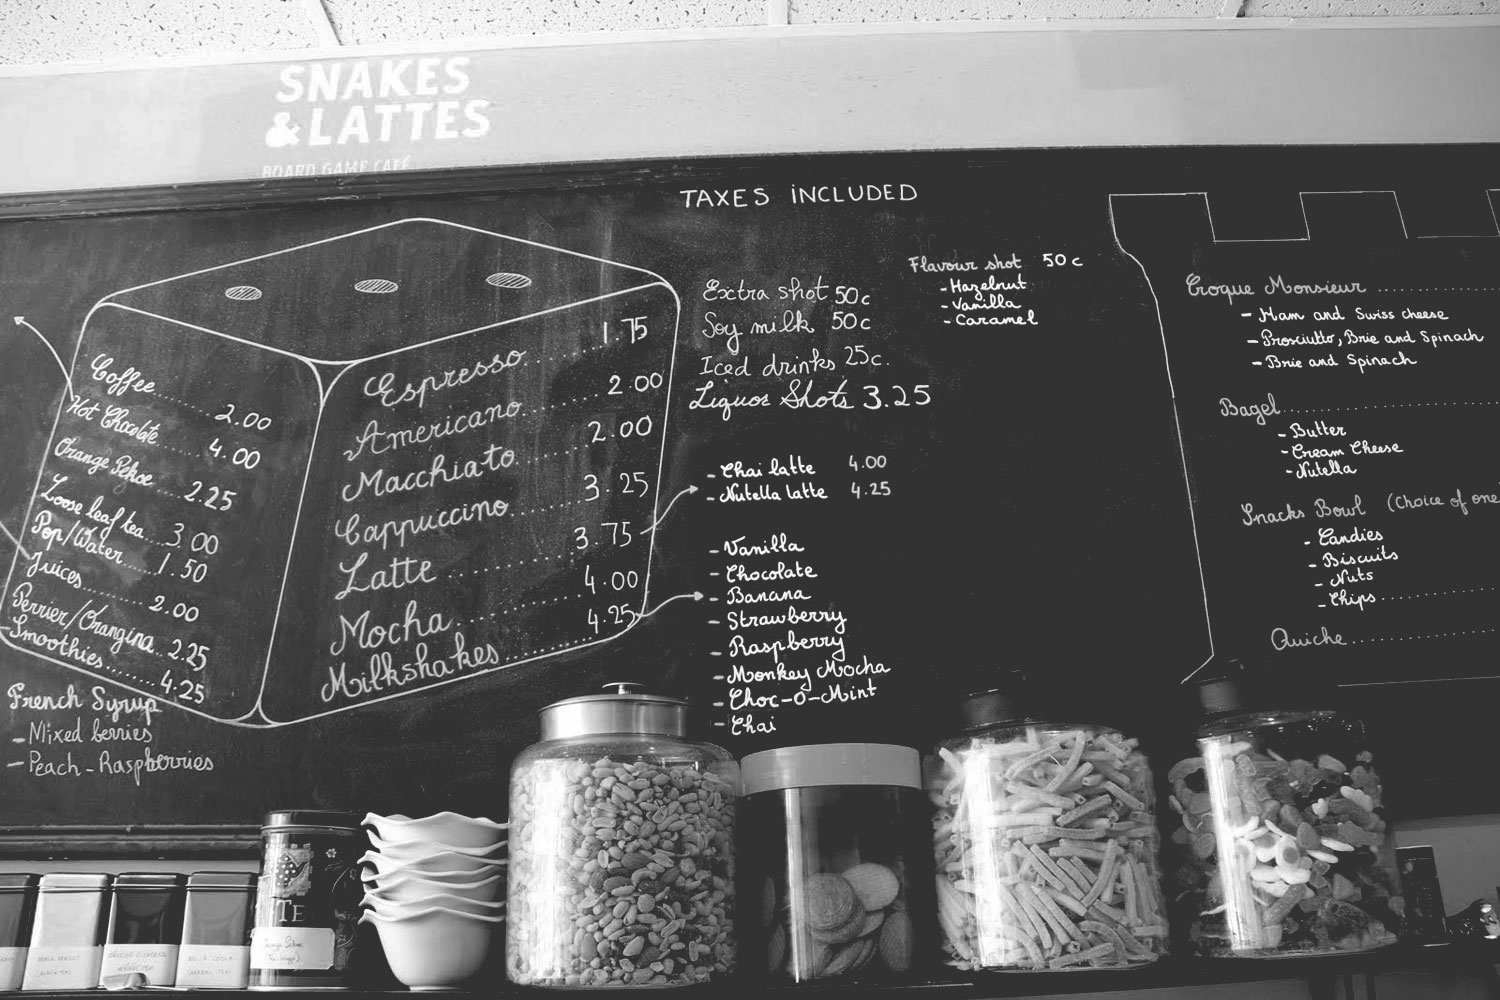 SNAKES
& LATTES
BOARD GAME CAFÉ
TAXES INCLUDED
Coffee.......2.00
Hot Chocolate.....4.00
Orange Pekoe....2.25
Loose leaf tea...3.00
Pop/Water....1.50
Juices.......2.00
Perrier/Orangina..2.25
Smoothies......4.25
French Syrup
- Mixed berries
- Peach-Raspberries
Espresso........1.75
Americano........2.00
Macchiato........2.00
Cappuccino.......3.25
Latte............3.75
Mocha...........4.00
Milkshakes.......4.25
Extra shot 50c
Soy milk 50c
Iced drinks 25c.
Liquor Shots 3.25
Flavour shot 50c
- Hazelnut
- Vanilla
- Caramel
- Chai latte 4.00
- Nutella latte 4.25
- Vanilla
- Chocolate
- Banana
- Strawberry
- Raspberry
- Monkey Mocha
- Choc-o-Mint
- Chai
Croque Monsieur ..........
- Ham and Swiss cheese
- Prosciutto, Brie and Spinach
- Brie and Spinach
Bagel....................
- Butter
- Cream Cheese
- Nutella
Snacks Bowl (Choice of one
- Candies
- Biscuits
- Nuts
- Chips..............
Quiche.................
TE